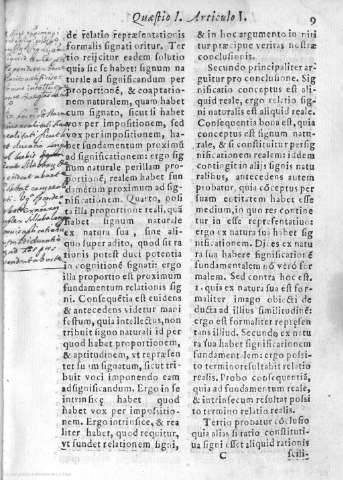 Quæstio I. Articulo I.
9
de relatio repræsentationis
formalis signati oritur. Ter
tio reijcitur eadem solutio
quia sic se habet: signum na
turale ad significandum per
proportionē, & coaptatio-
nem naturalem, quam habet
cum signato, sicut is habet
vox per impositionem, sed
vox per impositionem, ha-
bet fundamentum proximū
ad significationem: ergo sig
num naturale per illam pro-
portionē, realem habet fun
damentum proximum ad sig-
nificationem. Quarto, posi
ta illa proportione reali, quā
habet signum naturale
ex natura sua, sine ali-
quo super adito, quod sit ra
tionis potest duci potentia
in cognitionē signati: ergo
illa proportio est proximum
fundamentum relationis sig
ni. Consequētia est euidens
& antecedens videtur mani
festum, quia intellectus, non
tribuit signo naturali id per
quod habet proportionem,
& aptitudinem, vt repræsen
tet suum signatum, sicut tri-
buit voci imponendo eam
ad significandum. Ergo in se
intrinsicę habet quod
habet vox per impositio-
nem. Ergo intrinsice, & rea
liter habet, quod requitur,
vt fundet relationem signi,
& in hoc argumento in niti
tur præcipue veritas nostræ
conclusionis.
Secundo principaliter ar-
guitur pro conclusione. Sig
nificatio conceptus est ali
quid reale, ergo relatio sig-
ni naturalis est aliquid reale.
Consequentia bona est, quia
conceptus est signum natu-
rale, & si constituitur persig
nificationem realem: iddem
contingit in alijs signis natu
ralibus, antecedens autem
probatur, quia cōceptus per
suam entitatem habet esse
medium, in quo res contine
tur in esse repræsentatiuo:
ergo ex natura sua habet sig
nificationem. Dices ex natu
ra sua habere significationē
fundamentalem nō verò for
malem. Sed contra hoc est.
1. quia ex natura sua est for-
maliter imago obiecti de
ducta ad illius similitudinē:
ergo est formaliter represen
tans illud. Secundo ex natu
ra sua habet significationem
fundamentalem: ergo possi-
to termino resultabit relatio
realis. Probo consequentiā,
quia ad fundamentum reale,
& intrinsecum resultat possi
to termino relatio realis.
Tertio probatur cōclusio
quia alias si ratio constituti-
ua signi esset aliquid rationis
C
scili-